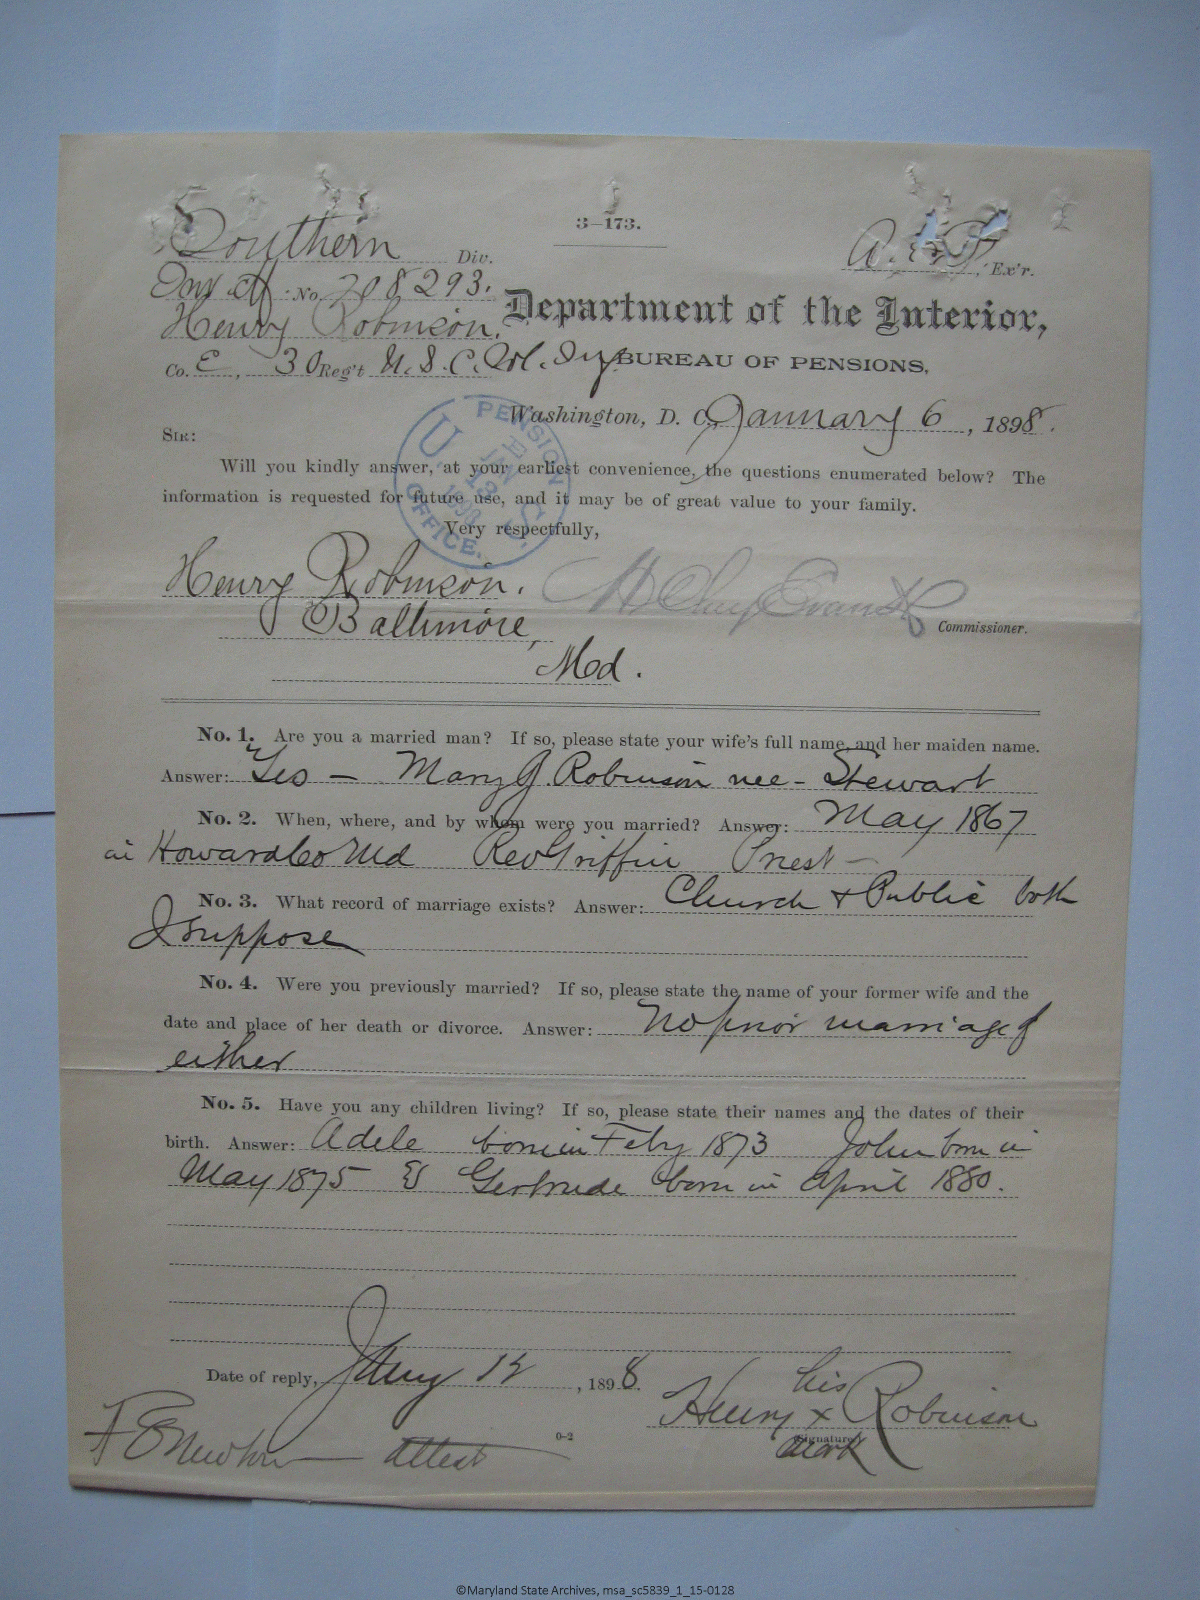 3-173.
Southern Div.
A. Ex'r.
Inv. Ctf. No. 708293.
Henry Robinson.
Department of the Interior,
Co. E, 30 Reg't U.S.C. Vol. Inf
BUREAU OF PENSIONS,
Washington, D. C., January 6, 1898.
U. S. PENSION OFFICE. JAN
SIR:
Will you kindly answer, at your earliest convenience, the questions enumerated below? The
information is requested for future use, and it may be of great value to your family.
Very respectfully,
Henry Robinson.
H Clay Evans
Baltimore,
Commissioner.
Md.
No. 1. Are you a married man? If so, please state your wife's full name, and her maiden name.
Answer: Yes – Mary J. Robinson nee – Stewart
No. 2. When, where, and by whom were you married? Answer: May 1867
in Howard Co Md Rev Griffin Priest –
No. 3. What record of marriage exists? Answer: Church & Public both
I suppose
No. 4. Were you previously married? If so, please state the name of your former wife and the
date and place of her death or divorce. Answer: No prior marriage of
either
No. 5. Have you any children living? If so, please state their names and the dates of their
birth. Answer: Adele born in Feby 1873 John born in
May 1875 & Gertrude born in April 1880.
Date of reply, Jany 12, 1898.
his
Henry x Robinson
Signature.
mark
F E Newton – attest
0-2
©Maryland State Archives, msa_sc5839_1_15-0128